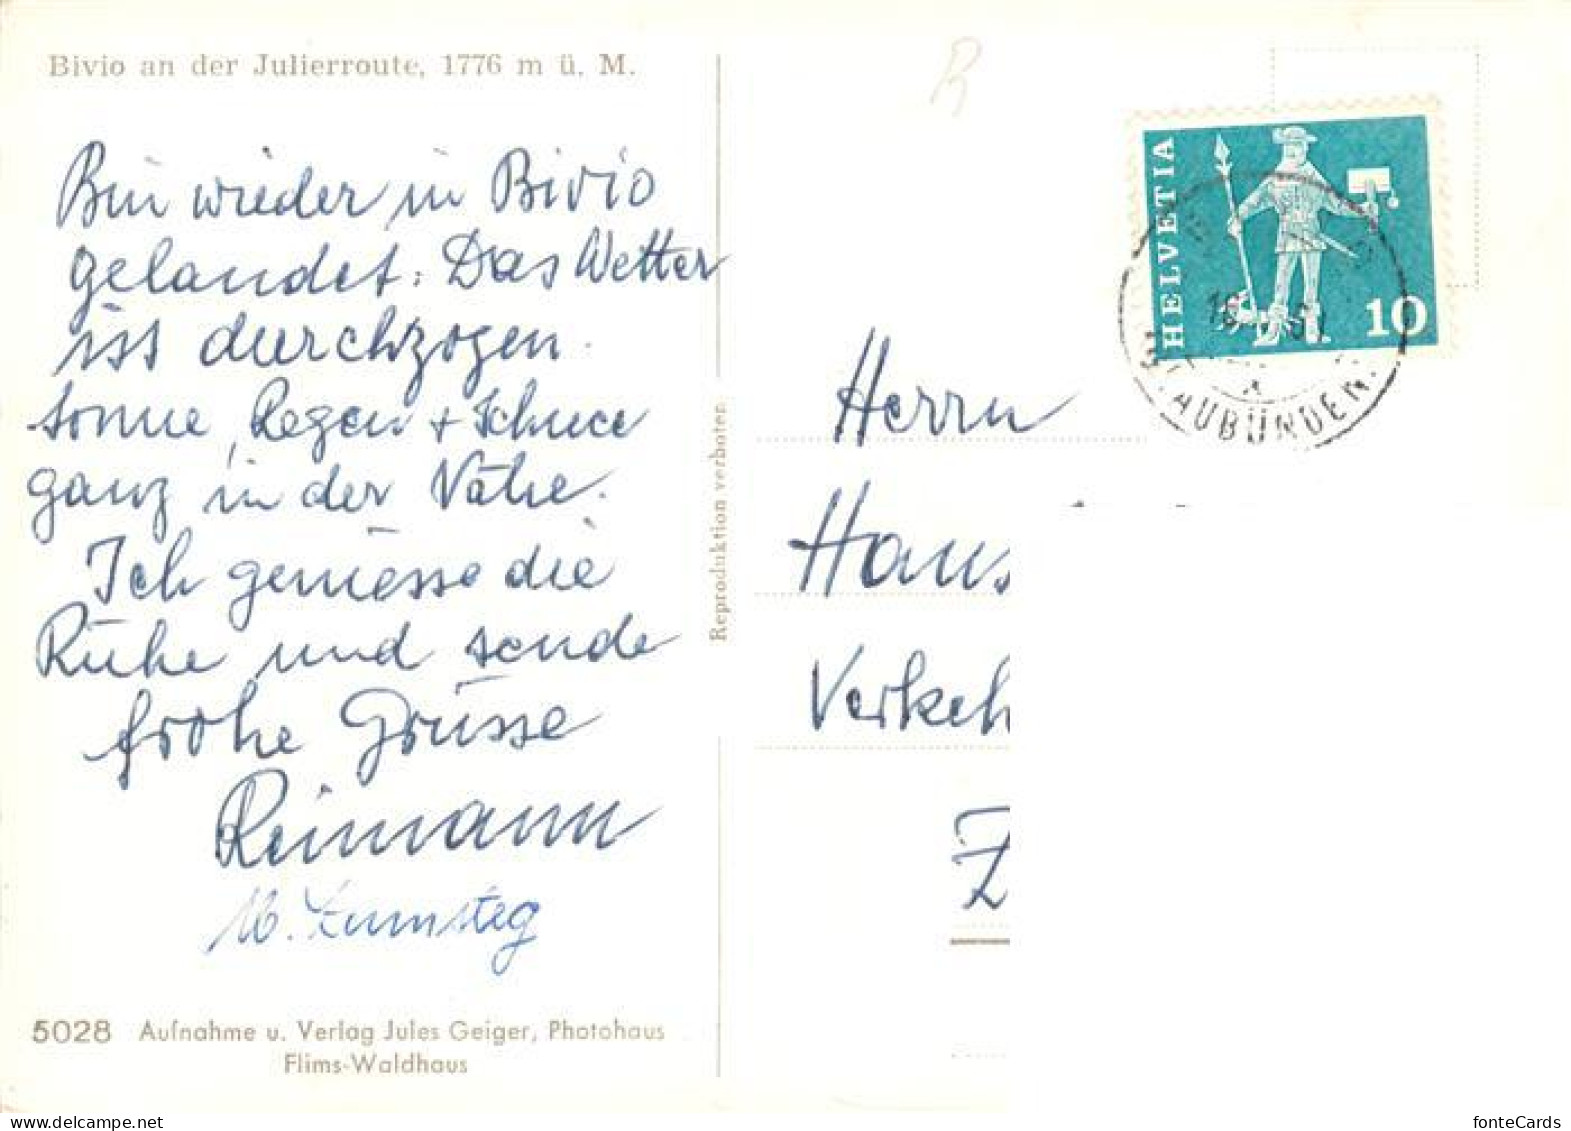 Bivio an der Julierroute, 1776 m ü. M.
Bin wieder in Bivio
gelandet. Das Wetter
ist durchzogen.
Sonne, Regen + Schnee
ganz in der Nähe.
Ich geniesse die
Ruhe und sende
frohe Grüsse
Reimann
M. Zumsteg
5028 Aufnahme u. Verlag Jules Geiger, Photohaus
Flims-Waldhaus
Reproduktion verboten
HELVETIA
10
AUBÜNDEN
Herrn
Hans
Verkeh
Z
fonteCards